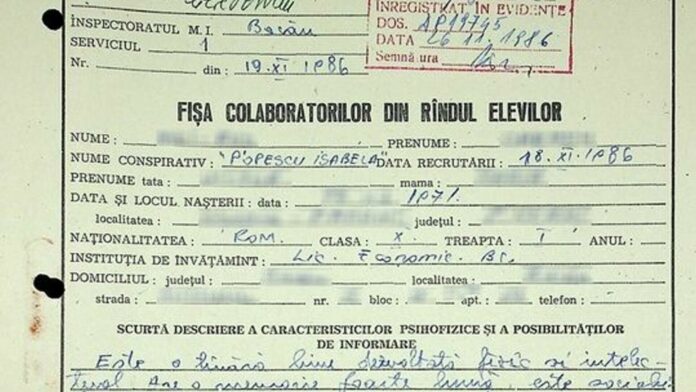 INSPECTORATUL M.I. Bacău
SERVICIUL 1
Nr. din: 19.XI 1986
ÎNREGISTRAT ÎN EVIDENȚE
DOS. AP19745
DATA 26 11. 1986
Semnătura
FIȘA COLABORATORILOR DIN RÎNDUL ELEVILOR
NUME: PRENUME:
NUME CONSPIRATIV: "POPESCU ISABELA" DATA RECRUTĂRII: 18.XI.1986
PRENUME tata: mama:
DATA ȘI LOCUL NAȘTERII: data: 1971.
localitatea: județul:
NAȚIONALITATEA: ROM. CLASA: X. TREAPTA: I ANUL:
INSTITUȚIA DE ÎNVĂȚĂMÎNT: Lic. Economic. Bc.
DOMICILIUL: județul: localitatea:
strada: nr. bloc: apt.: telefon:
SCURTĂ DESCRIERE A CARACTERISTICILOR PSIHOFIZICE ȘI A POSIBILITĂȚILOR
DE INFORMARE
Este o tînără bine dezvoltată fizic și intelec-
tual. Are o memorie foarte bună, este sociabi